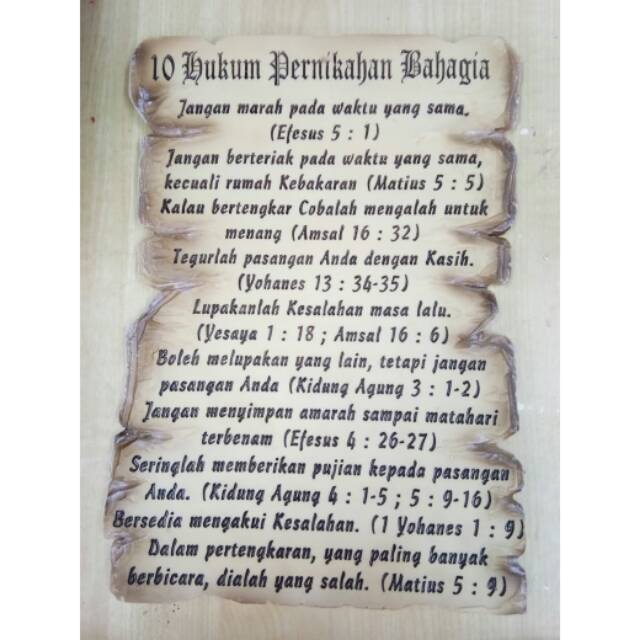 10 Hukum Pernikahan Bahagia
Jangan marah pada waktu yang sama.
(Efesus 5 : 1)
Jangan berteriak pada waktu yang sama,
kecuali rumah Kebakaran (Matius 5 : 5)
Kalau bertengkar Cobalah mengalah untuk
menang (Amsal 16 : 32)
Tegurlah pasangan Anda dengan Kasih.
(Yohanes 13 : 34-35)
Lupakanlah Kesalahan masa lalu.
(Yesaya 1 : 18 ; Amsal 16 : 6)
Boleh melupakan yang lain, tetapi jangan
pasangan Anda (Kidung Agung 3 : 1-2)
Jangan menyimpan amarah sampai matahari
terbenam (Efesus 4 : 26-27)
Seringlah memberikan pujian kepada pasangan
Anda. (Kidung Agung 4 : 1-5 ; 5 : 9-16)
Bersedia mengakui Kesalahan. (1 Yohanes 1 : 9)
Dalam pertengkaran, yang paling banyak
berbicara, dialah yang salah. (Matius 5 : 9)